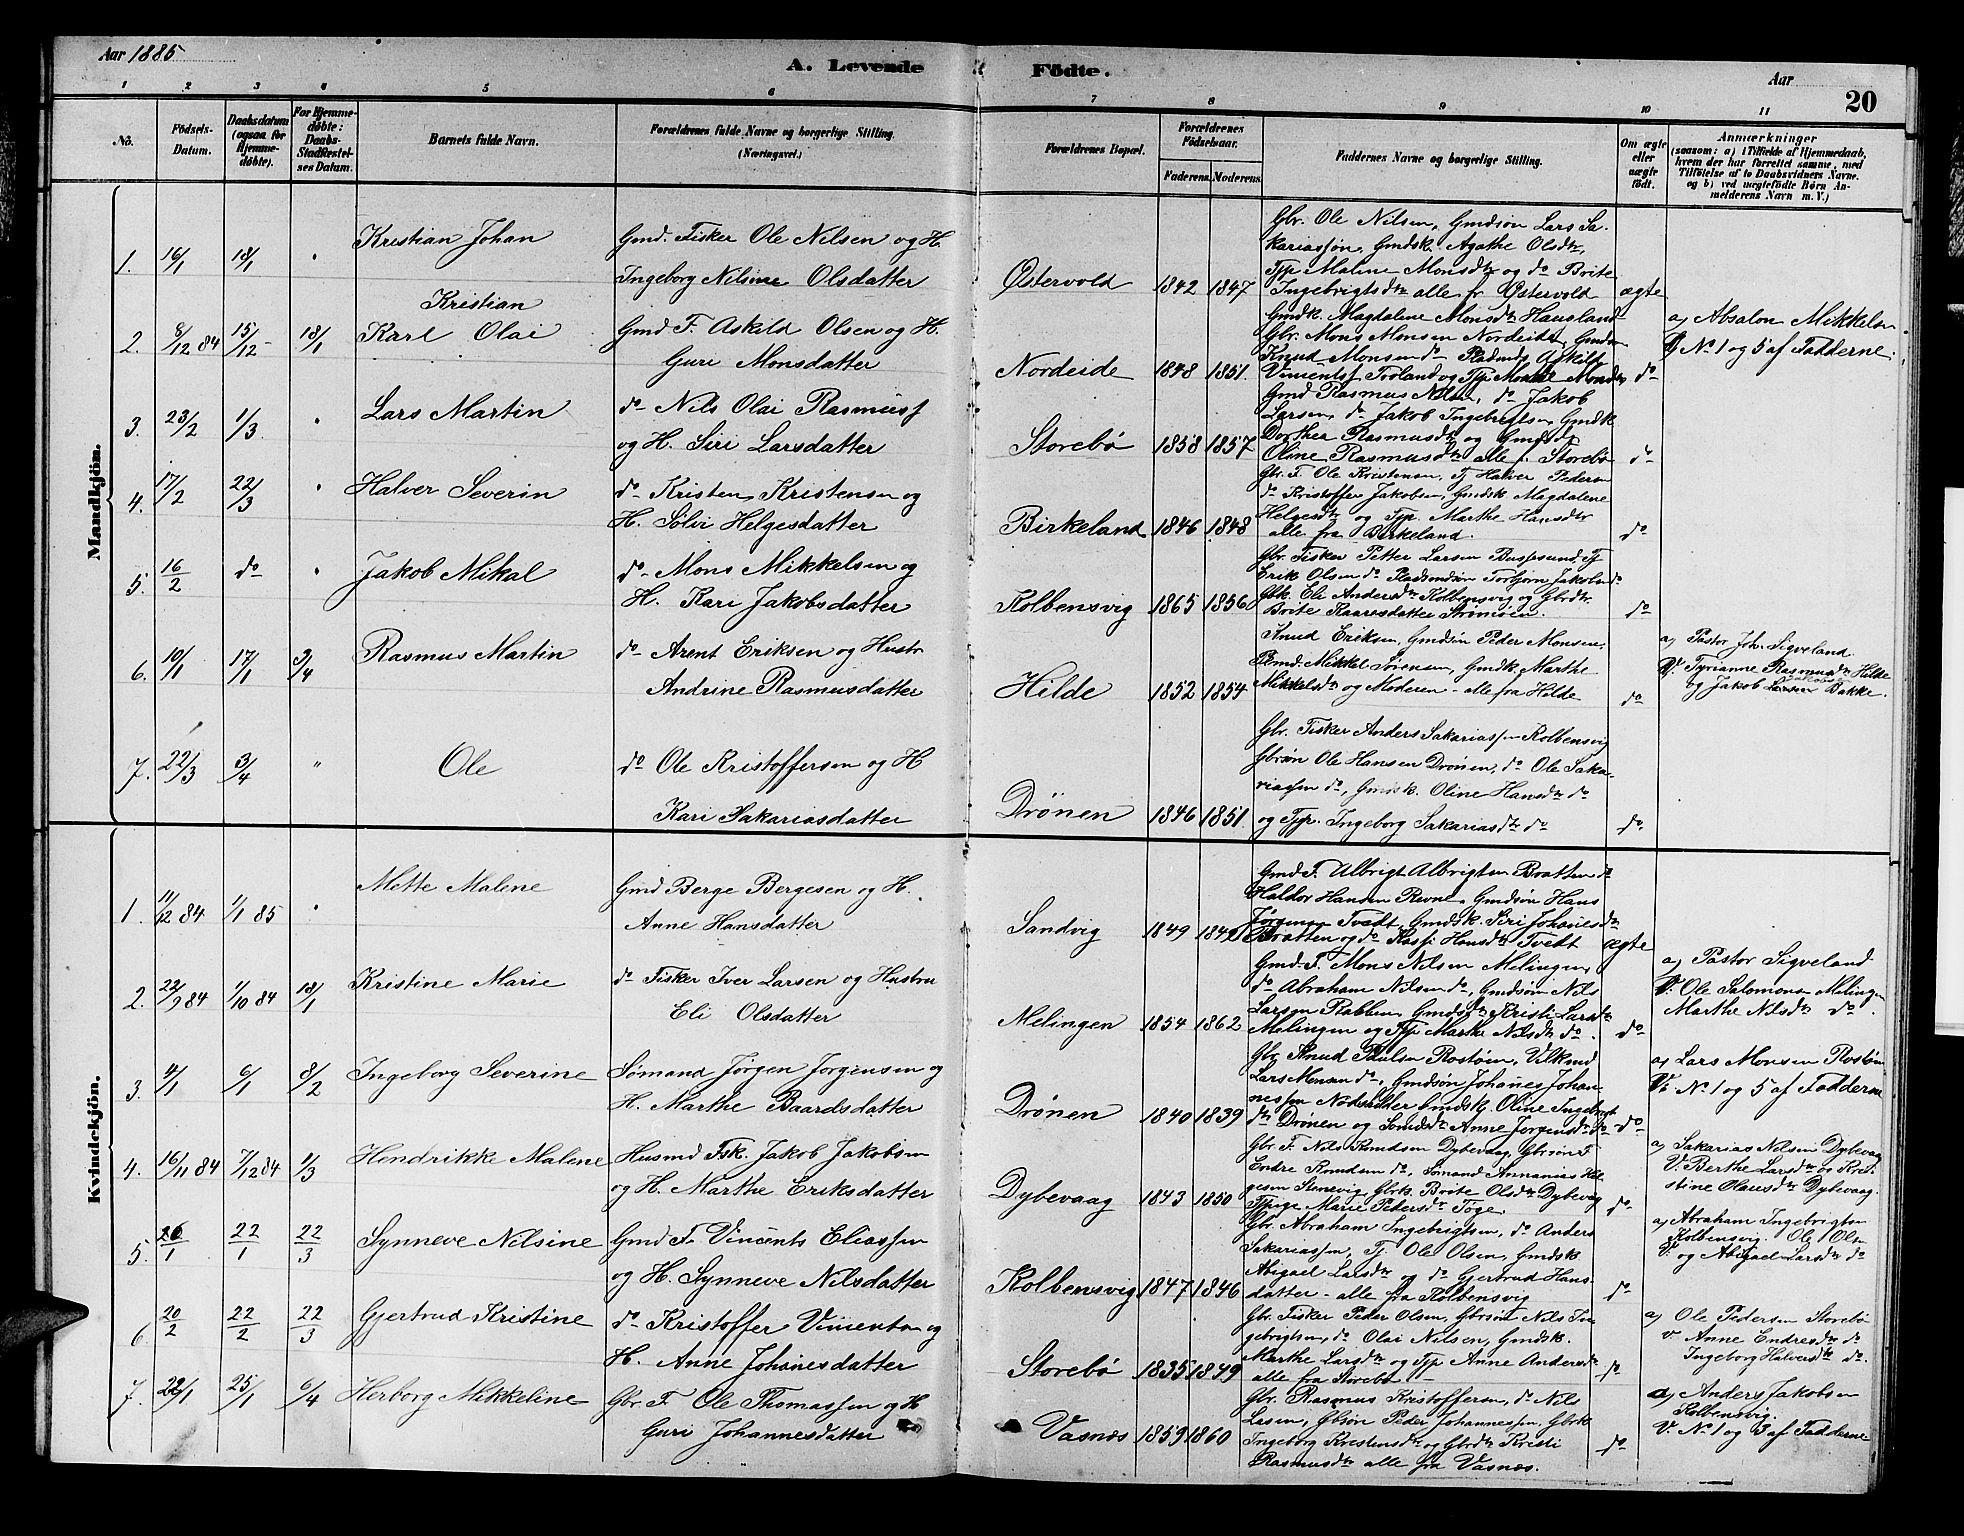 Aar 1885
A. Levende Födte.
Aar
20
1 2 3 4 5 6 7 8 9 10 11
No.
Födsels-Datum.
Daabsdatum (ogsaa for Hjemmedöbte).
For Hjemmedöbte: Daabs-Stadfæstelses Datum.
Barnets fulde Navn.
Forældrenes fulde Navne og borgerlige Stilling.
(Næringsvei.)
Forældrenes Bopæl.
Forældrenes Födselsaar.
Faderens. Moderens.
Faddernes Navne og borgerlige Stilling.
Om ægte eller uægte födt.
Anmærkninger
(saasom: a) i Tilfælde af Hjemmedaab, hvem der har forrettet samme, med Tilföielse af to Daabsvidners Navne. og b) ved uægtefödte Börn Anmelderens Navn m. V.)
Mandkjön.
1. 16/1 18/1 Kristian Johan
Gmd. Fisker Ole Nilsen og H.
Ingeborg Nilsine Olsdatter
Østervold 1842 1847
Gbr. Ole Nilsen, Gmdsøn Lars Sa-
kariassøn, Gmdsk. Agathe Olsdtr,
Tjp Maline Monsdtr og do Brite
Ingebrigtsdtr alle fr Østervold
ægte
2. 8/12 84 15/12 18/1 Kristian
Karl Olai
Gmd F. Askild Olsen og H.
Guri Monsdatter
Nordeide 1848 1851
Gmdk. Magdalene Monsdtr Hausland
Gbr. Mons Monsen Nordeide, Gmdsøn
Knud Monsen do
do
a) Absalon Mikkelsen
V No 1 og 5 af Fadderne.
3. 23/2 1/3 Lars Martin
do Nils Olai Rasmuss
og H. Siri Larsdatter
Storebø 1858 1857
Gmd Rasmus Nilsen, do Jakob
Larsen, do Jakob Ingebrigtsen, Gmdk
Dorthea Rasmusdtr og Gmdsk
Oline Rasmusdtr alle f. Storebø
do
4. 17/2 22/3 Halver Severin
do Kristen Kristensen og
H. Sølvi Helgesdatter
Birkeland 1846 1848
Gbr. F. Ole Kristensen, Tj Halver Pedersen
do Kristoffer Jakobsen, Gmdsk Magdalene
Helgesdtr og Tjp. Marthe Hansdtr
alle fra Birkeland.
do
5. 16/2 do Jakob Mikal
do Mons Mikkelsen og
H. Kari Jakobsdatter
Kolbensvig 1865 1856
Gbr. Fisker Petter Larsen Bussesund, Tj
Erik Olsen do Torbjørn Jakobsen do
Gbk. Eli Andersdtr Kolbensvig og Gbrdtr.
Brite Kaaresdatter Strømsen.
do
6. 10/1 17/1 3/4 Rasmus Martin
do Arent Eriksen og Hustr
Andrine Rasmusdatter
Hilde 1852 1854
Knud Eriksen, Gmdsøn Peder Monsen,
Mikkel Sørensen, Gmdk. Marthe
Mikkelsdtr og Moderen - alle fra Hilde
do
a) Pastor Joh. Sigveland
V. Rasmusdtr Hilde
og Jakob Bakke.
7. 22/3 3/4 " Ole
do Ole Kristoffersen og H
Kari Sakariasdatter
Drönen 1846 1851
Gbr. Fisker Anders Sakariassen Kolbensvig
Gbrsøn Ole Hansen Drönen, do Ole Saka-
riassen do, Gmdsk. Oline Hansdtr do
og Tjp. Ingeborg Sakariasdtr do
do
Kvindekjön.
1. 11/12 84 1/1 85 Mette Malene
Gmd Berge Bergesen og H.
Anne Hansdatter
Sandvig 1849 1849
Gmd F. Albrigt Albrigtsen Bratten do
Haldor Hansen Revne, Gmdsøn Hans
Jörgensen Tvedt, Gmdsk. Siri Johannesdtr
Bratten og do Hansdtr Tvedt
ægte
2. 22/9 84 1/10 84 18/1 Kristine Marie
do Fisker Iver Larsen og Hustru
Eli Olsdatter
Melingen 1854 1862
Gmd F. Mons Nilsen Melingen,
do Abraham Nilsen do, Gmdsøn Nils
Larsen Rabben, Gmdsk Kristi Larsdtr
Melingen og Tjp Marthe Nilsdtr do.
do
a) Pastor Sigveland
V. Ole Salomons Melingen
Marthe Nilsdtr do.
3. 4/1 6/1 8/2 Ingeborg Severine
Sømand Jörgen Jörgensen og
H. Marthe Baardsdatter
Drönen 1840 1839
Gbr Knud Rostøen,
Lars Monsen do, Gmdsøn Johanes Johan-
nessen Gmdsk. Oline Ingebrigts
dtr Drönen og Anne Jørgensdtr do
do
a) Lars Monsen Rostøen
V. No 1 og 5 af Fadderne
4. 16/11 84 7/12 84 1/3 Hendrikke Malene
Husmd Fsk. Jakob Jakobsen
og H. Marthe Eriksdatter
Dybevaag 1843 1850
Gbr. F. Nils Knudsen Dybevaag, Gbrsøn F
Endre Knudsen do, Sømand Annanias Hel-
gesen Stenevig Gbrk. Brite Olsdtr Dybevag
Tjpige Marie Pedersdtr Toge.
do
a) Sakarias Nilsen Dybevaag
V. Berthe Larsdtr og Kri-
stine Olausdtr Dybevaag.
5. 26/1 22/1 22/3 Synneve Nilsine
Gmd F. Vincents Eliassen
og H. Synneve Nilsdatter
Kolbensvig 1847 1846
Gbr. Abraham Ingebrigtsen, do Anders
Sakariassen, Tj Ole Olsen, Gmdsk
Abigael Larsdtr og do Gjertrud Hans-
datter - alle fra Kolbensvig
do
a) Abraham Ingebrigtsen
Kolbensvig. Ole Olsen
V. og Abigael Larsdtr do
6. 20/2 22/2 22/3 Gjertrud Kristine
do Kristoffer Vincentsen og
H. Anne Johanesdatter
Storebø 1835 1849
Gbr. Fisker Peder Olsen, Gbrsøn Nils In-
gebrigtsen, do Olai Nilsen, Gmdsk.
Marthe Larsdtr og Tjp Anne Andersdtr
alle fra Storebø -
do
a) Ole Pedersen Storebø
v Anne Endresdtr do
Ingeborg Halversdtr do.
7. 22/1 25/1 6/4 Herborg Mikkeline
Gbr. F. Ole Thomassen og H
Guri Johannesdatter
Vasnæs 1859 1860
Gbr. Rasmus Kristoffersen, do Nils
Lasen, Gbsøn Peder Johannessen, Gbrk
Ingeborg Kristensdtr og Gbrdtr Kristi
Rasmusdtr alle fra Vasnæs.
do
a) Anders Jakobsen
Kolbensvig.
V. No 1 og 3 af Fadderne